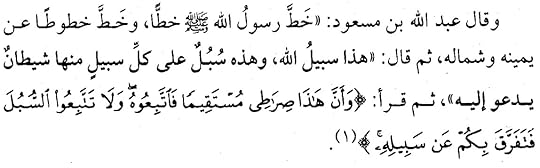 وقال عبد الله بن مسعود: «خَطَّ رسولُ الله ﷺ خطًّا، وخَطَّ خطوطًا عن
يمينه وشماله، ثم قال: «هذا سبيلُ الله، وهذه سُبُلٌ على كلِّ سبيلٍ منها شيطانٌ
يدعو إليه»، ثم قرأ: ﴿وَأَنَّ هَٰذَا صِرَٰطِى مُسْتَقِيمًا فَٱتَّبِعُوهُ ۖ وَلَا تَتَّبِعُوا۟ ٱلسُّبُلَ
فَتَفَرَّقَ بِكُمْ عَن سَبِيلِهِۦ ۚ﴾(١).